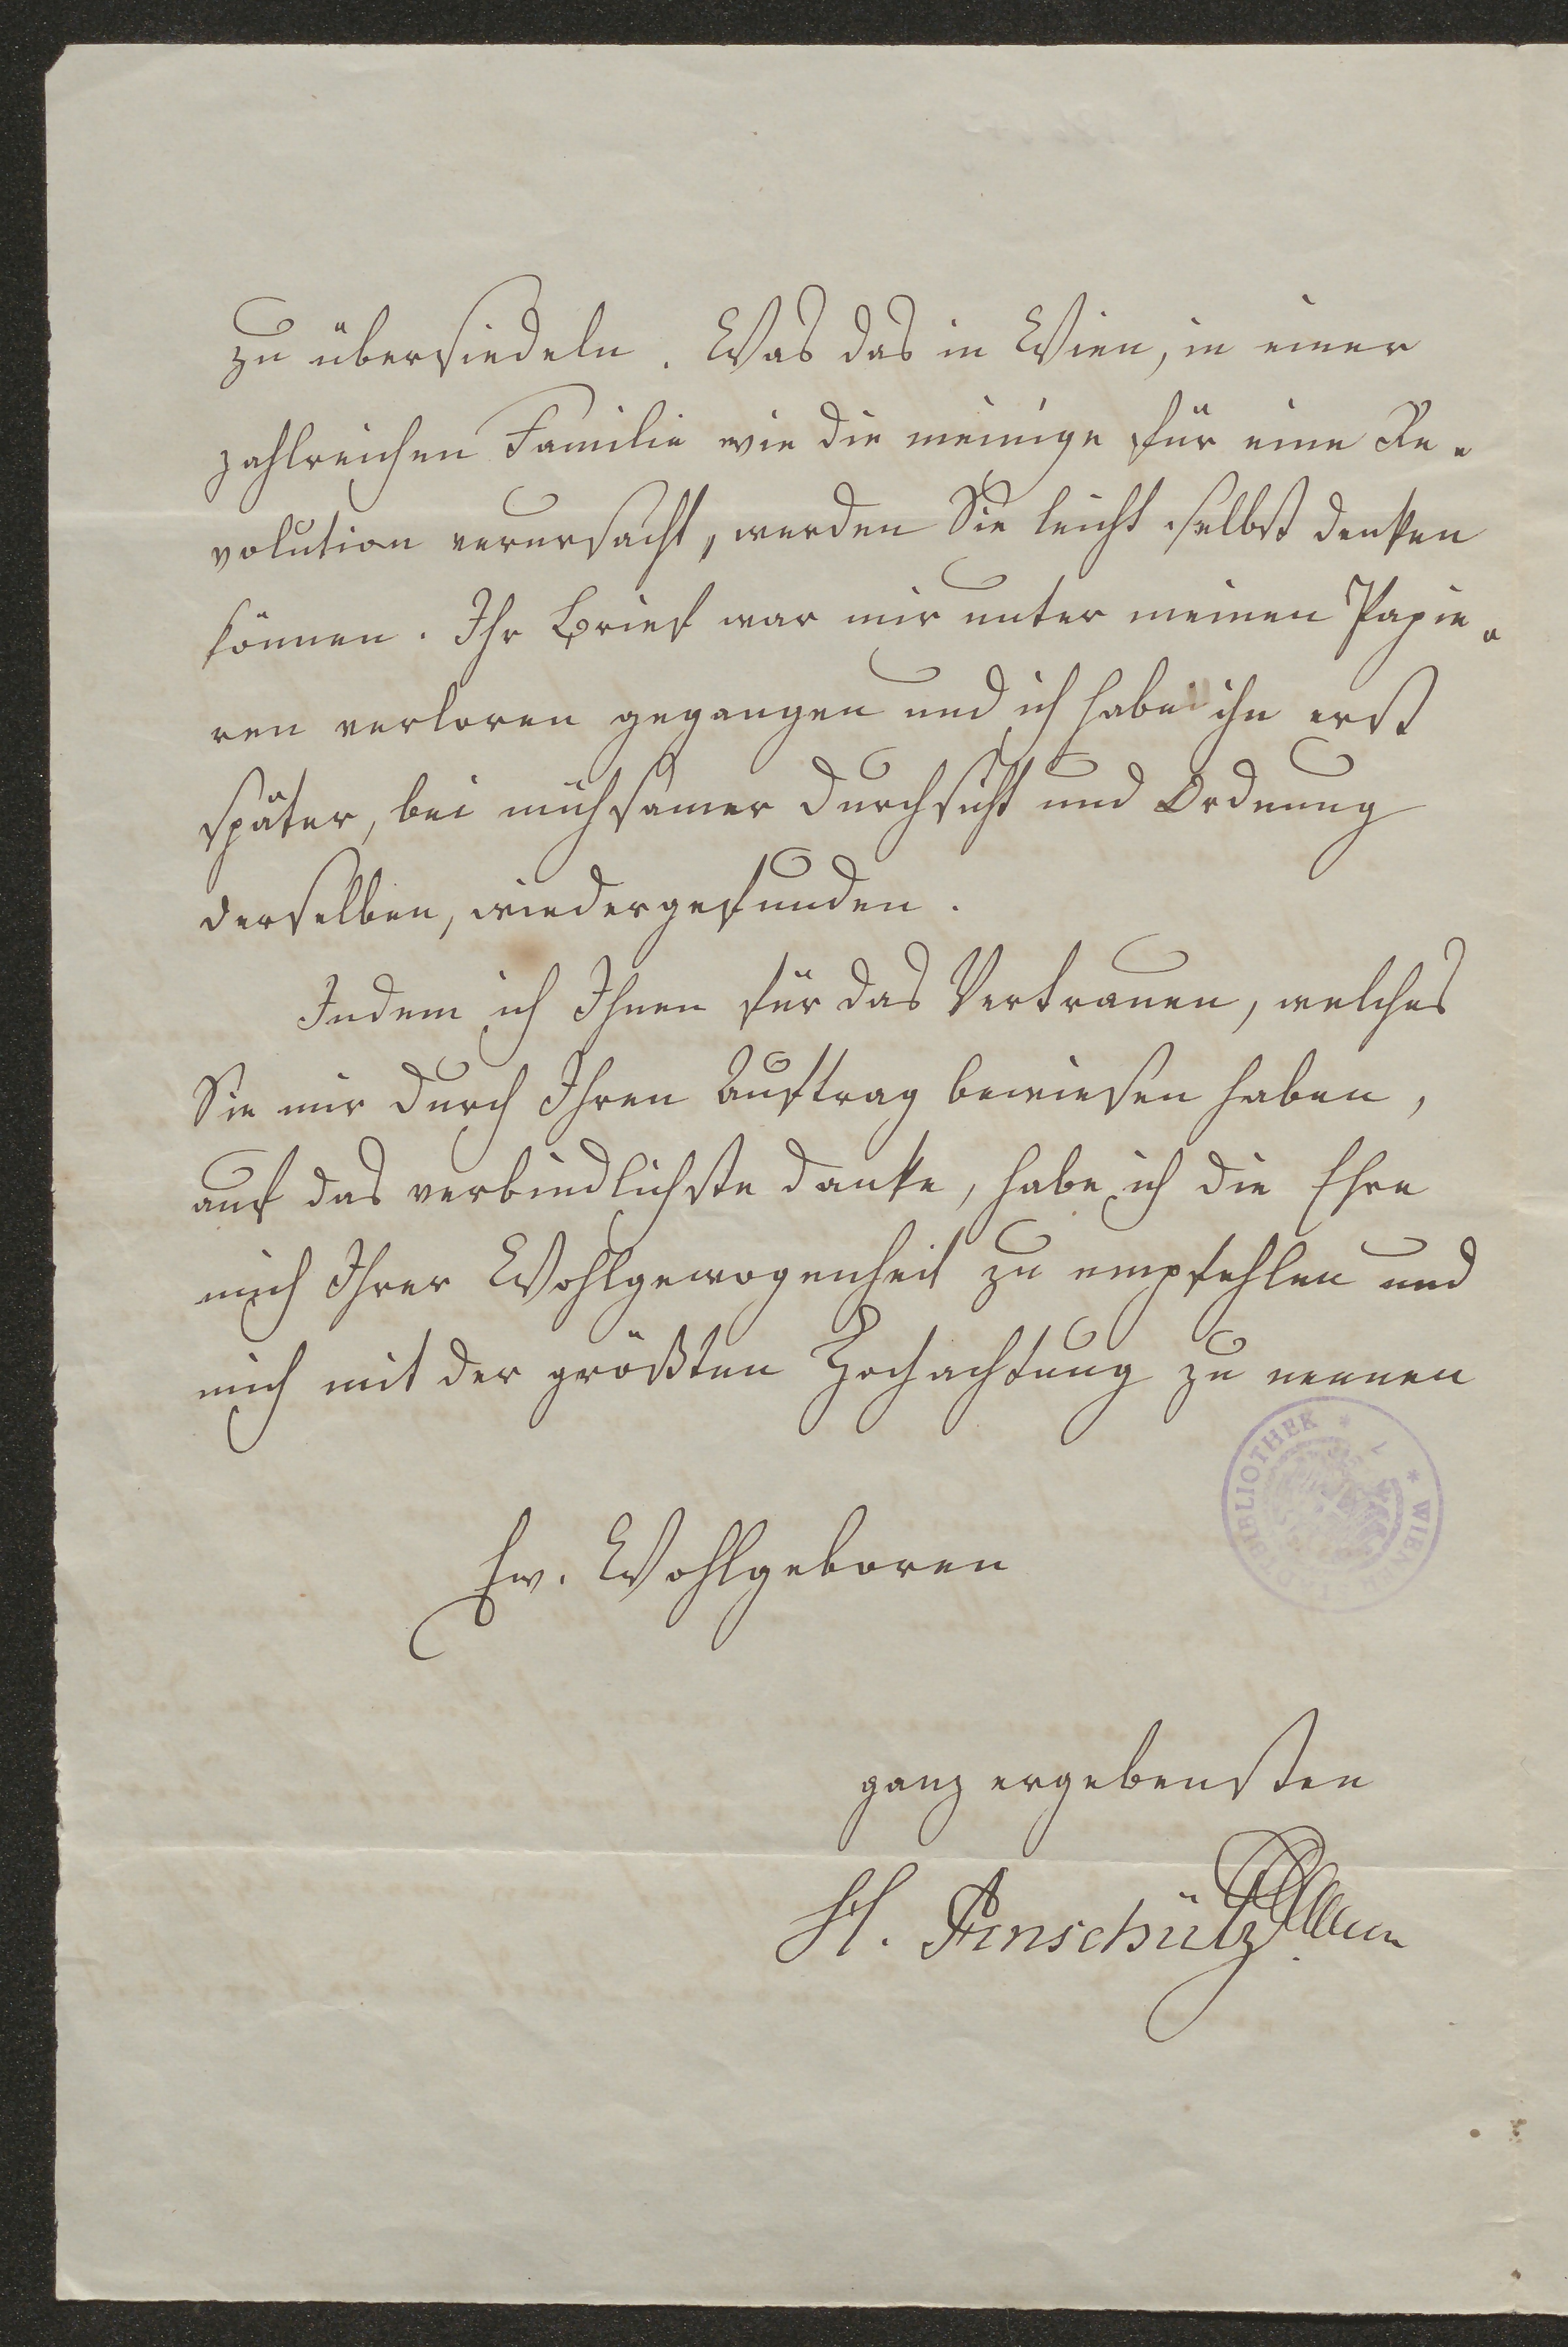 zu übersiedeln. Was das in Wien, in einer
zahlreichen Familie wie die meinige für eine Re-
volution verursacht, werden Sie leicht selbst denken
können. Ihr Brief war mir unter meinen Papie-
ren verloren gegangen und ich habe ihn erst
später, bei mühsamer Durchsicht und Ordnung
derselben, wiedergefunden.
Indem ich Ihnen für das Vertrauen, welches
Sie mir durch Ihren Auftrag bewiesen haben,
auf das verbindlichste danke, habe ich die Ehre
mich Ihrer Wohlgewogenheit zu empfehlen und
mich mit der größten Hochachtung zu nennen
BIBLIOTHEK * * WIEN
Ew. Wohlgeboren
ganz ergebensten
H. Anschütz